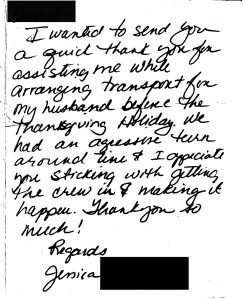 I wanted to send you
a quick thank you for
assisting me while
arranging transport for
my husband before the
Thanksgiving Holiday. We
had an agressive turn
around time & I appreciate
you sticking with getting
the crew in & making it
happen. Thank you so
much!
Regards
Jessica